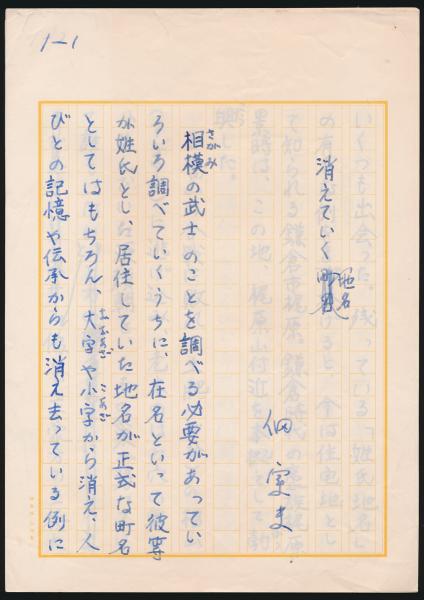 1-1
消えていく地名
佃 実夫
相模の武士のことを調べる必要があってい
さがみ
ろいろ調べていくうちに、在名といって彼等
が姓氏とした居住していた地名が正式な町名
としてはもちろん、大字や小字から消え、人
おおあざ こあざ
びとの記憶や伝承からも消え去っている例に